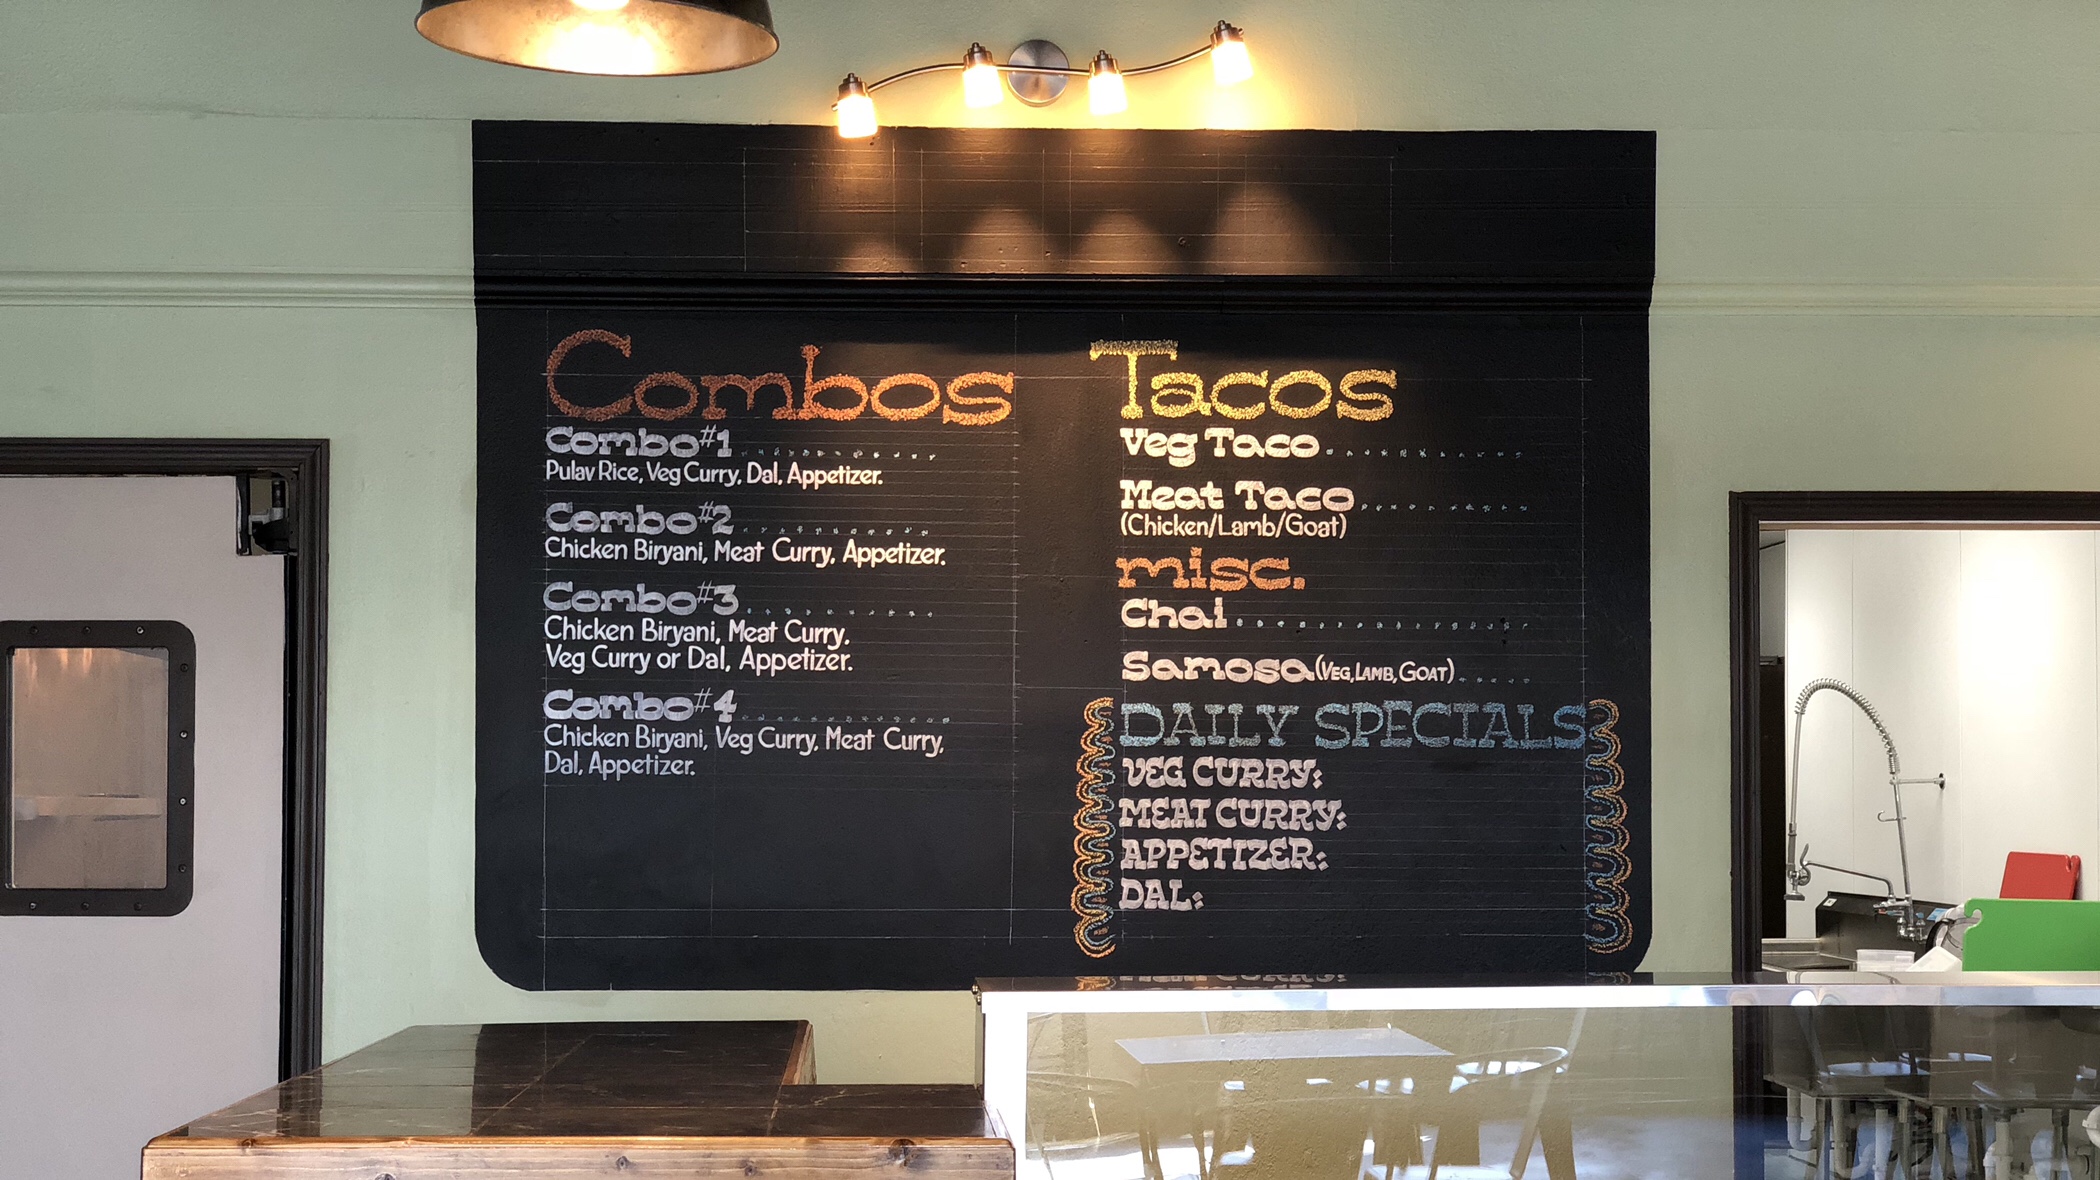 Combos
Combo #1
Pulav Rice, Veg Curry, Dal, Appetizer.
Combo #2
Chicken Biryani, Meat Curry, Appetizer.
Combo #3
Chicken Biryani, Meat Curry.
Veg Curry or Dal, Appetizer.
Combo #4
Chicken Biryani, Veg Curry, Meat Curry,
Dal, Appetizer.
Tacos
Veg Taco
Meat Taco
(Chicken/Lamb/Goat)
misc.
Chai
Samosa (VEG, LAMB, GOAT)
DAILY SPECIALS
VEG CURRY:
MEAT CURRY:
APPETIZER:
DAL: